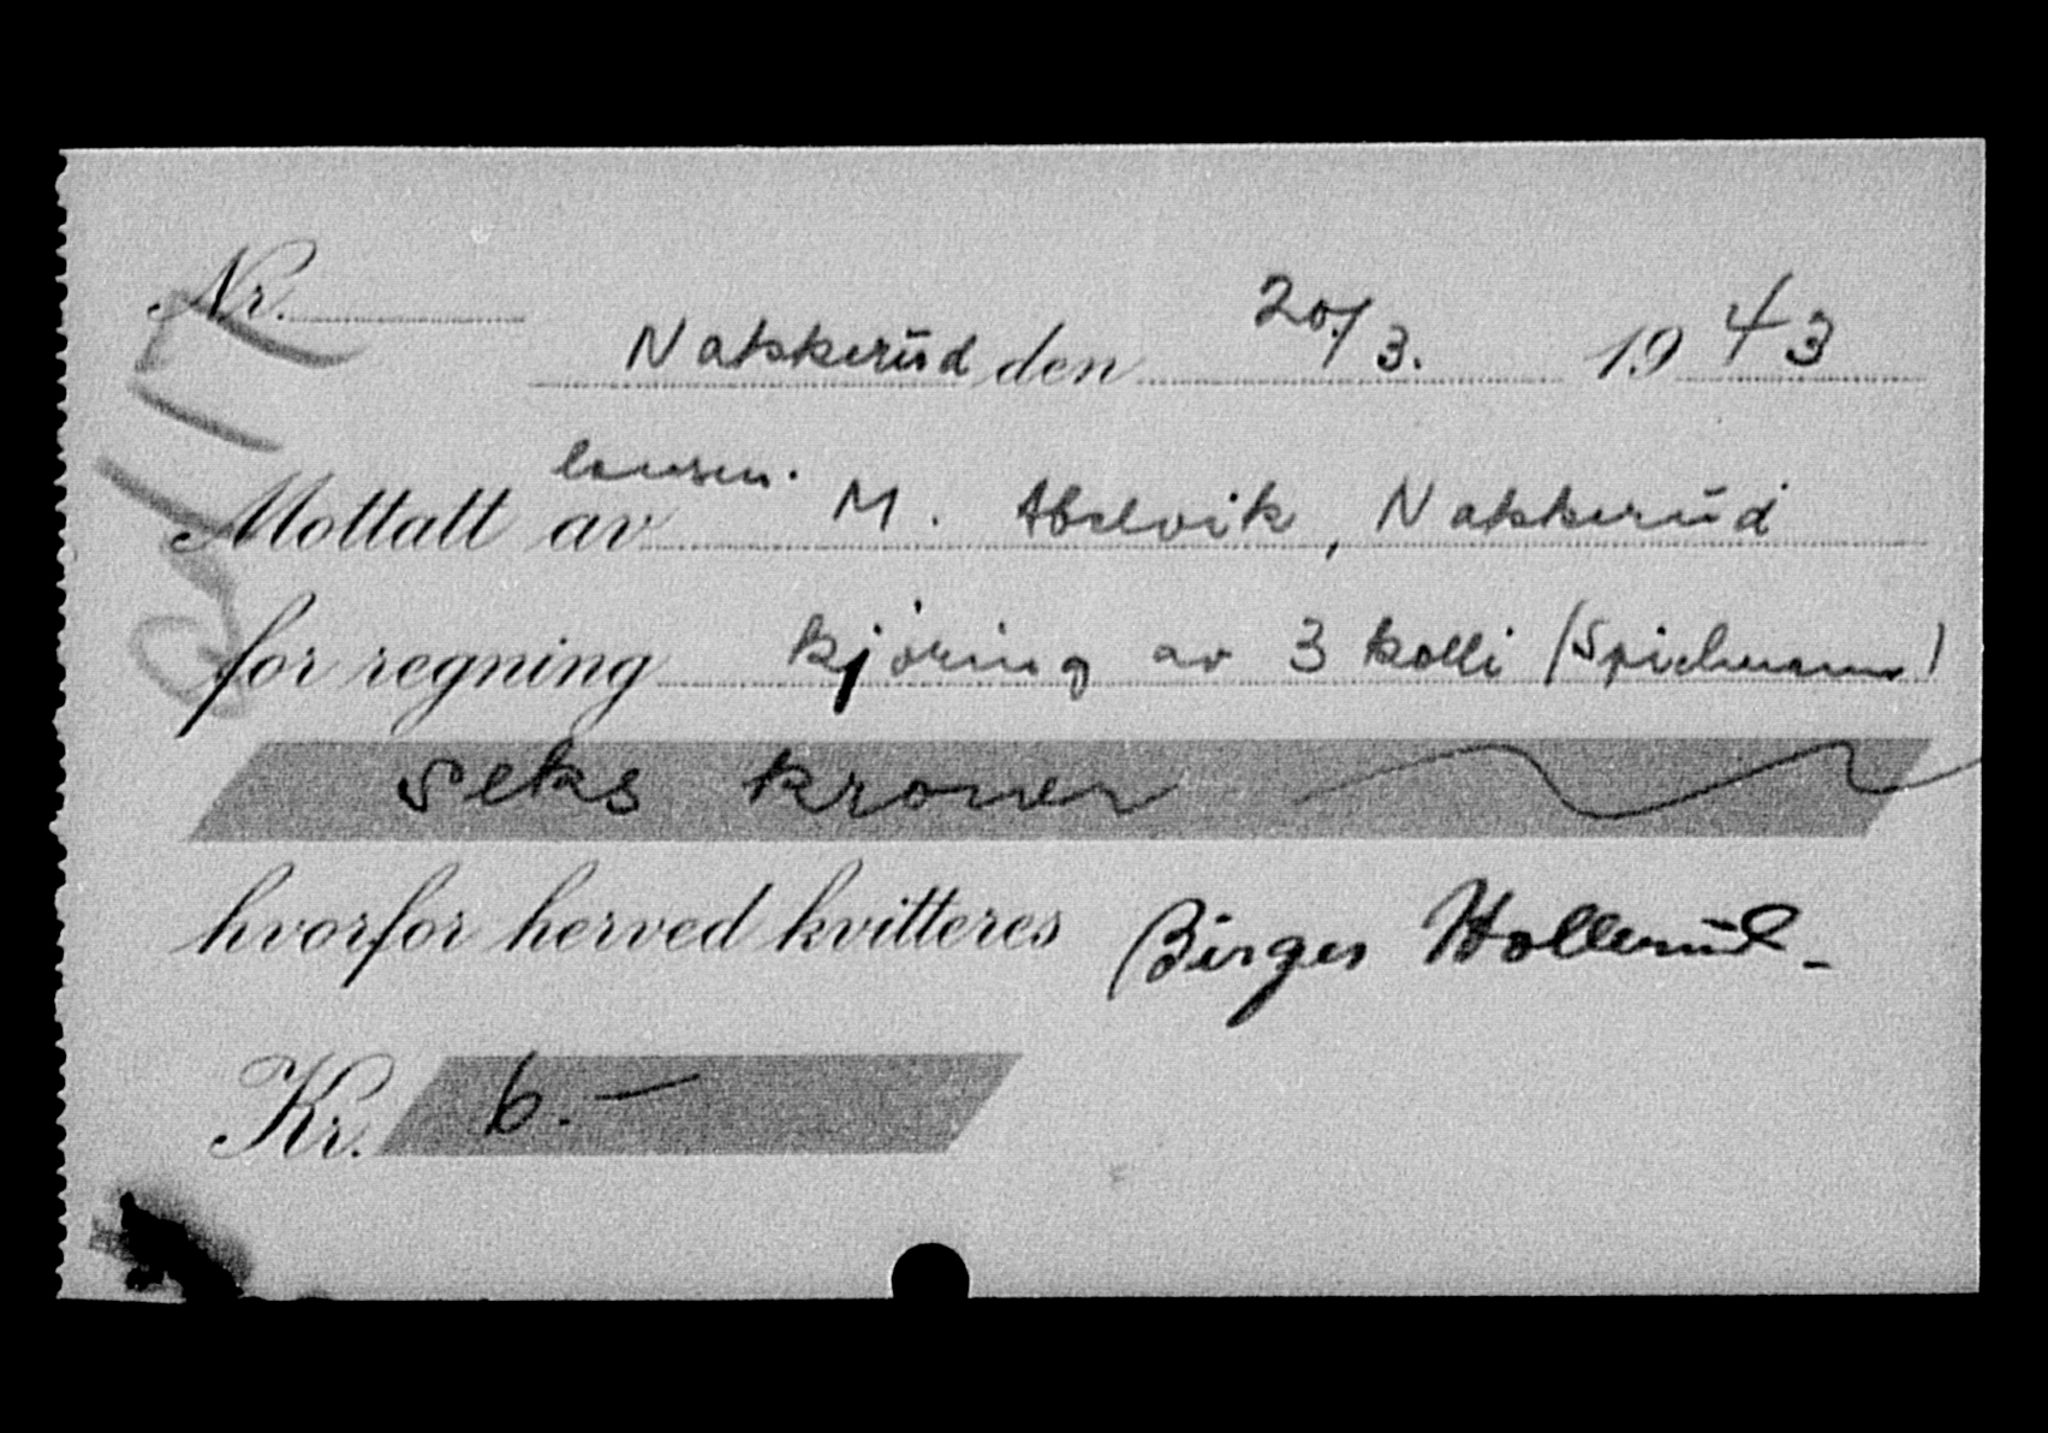 Nr.
Nakkerud den 20/3. 1943
lensm.
Mottatt av M. Abelvik, Nakkerud
for regning kjøring av 3 kolli (Spielmann)
seks kroner
hvorfor herved kvitteres Birger Hollerud-
Kr. 6.—